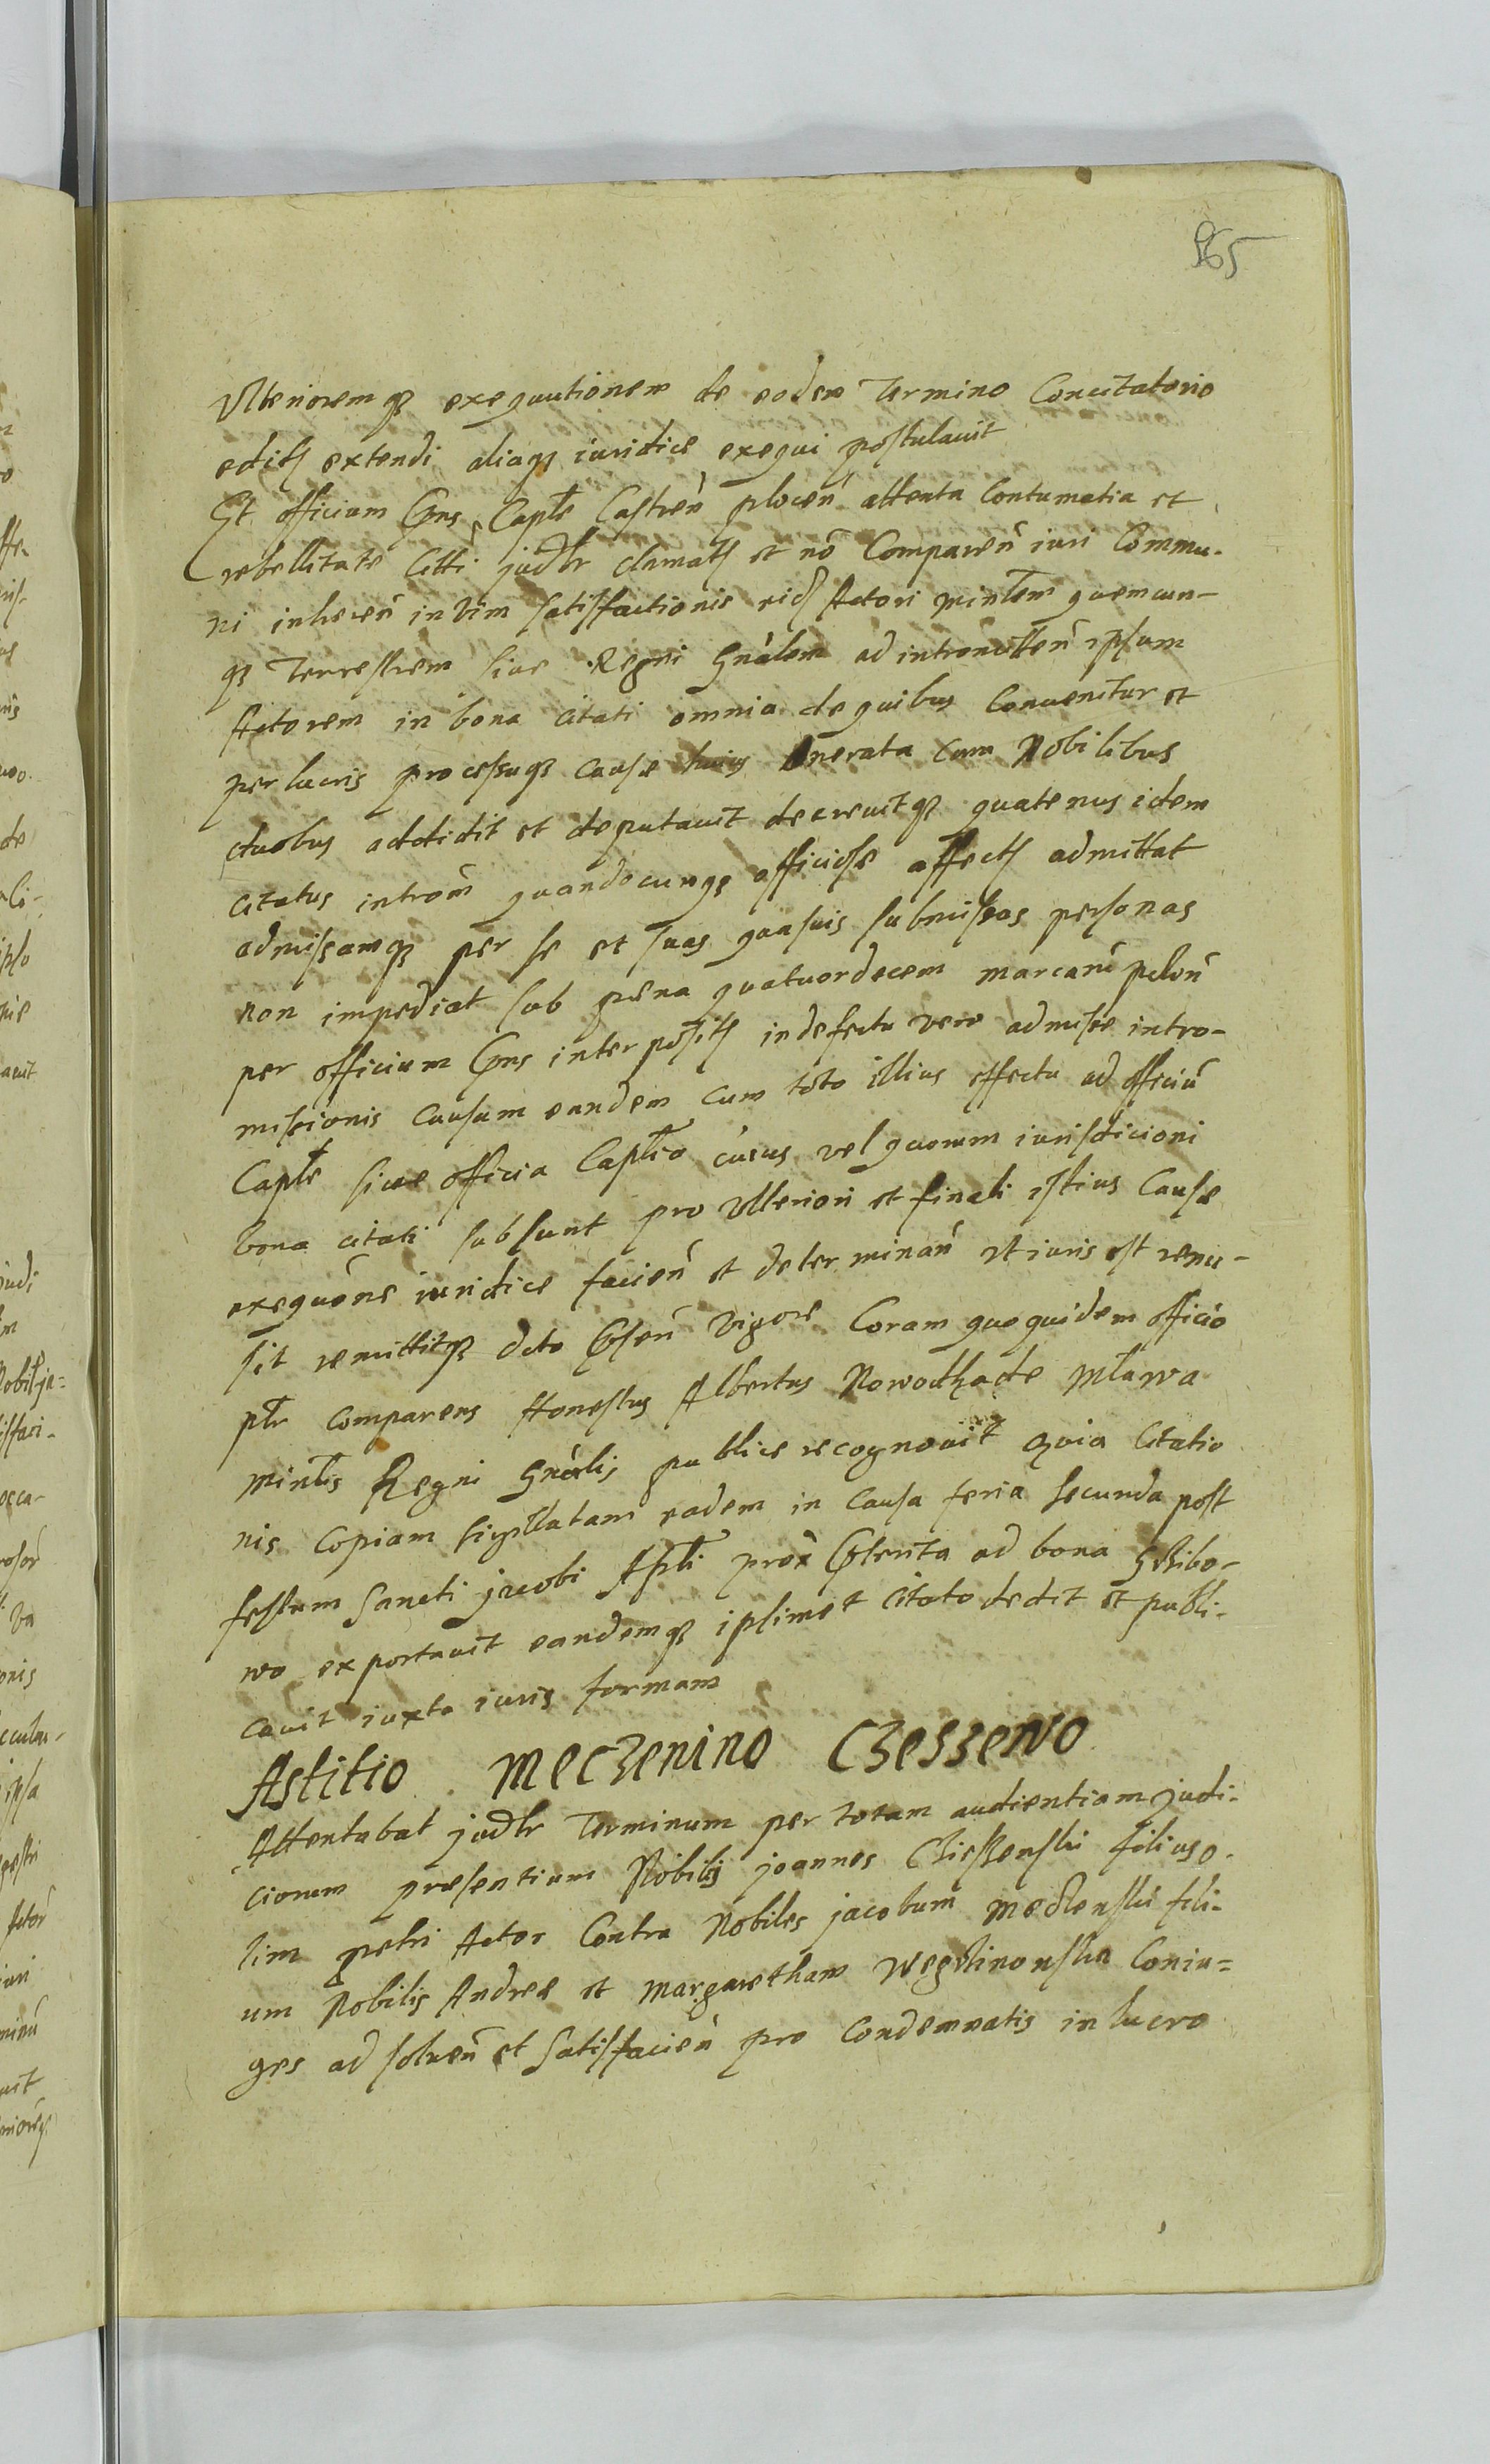 565
Ulteriorem qʒ exequutionem de eodem Termino Concitatorio
edits extendi aliaqʒ iuridice exequi postulauit
Et officium Cpns Caple Castren plocen attenta Contumatia et
rebellitate Citti judlr clamats et nō Comparen iuri Commu-
ni inheren in vim satisfactionis eid Actori minlem quemcun-
qʒ Terrestrem siue Regni Gnalem ad intromitten ipsum
Actorem in bona citati omnia de quibus Conuenitur et
per lucris processuqʒ cause huius onerata cum Nobilibus
duobus addidit et deputauit decreuitqʒ quatenus idem
citatus introm quandocunqʒ officiose affects admittat
admissamqʒ per se et suas quasuis submissas personas
non impediat sub pena quatuordecem marcarū pclon
per officium Cpns interposits in defectu vero admisse intro-
missionis causam eandem cum toto illius effectu ad officiū
Caple siue officia Caplia cuius vel quorum iurisdicioni
bona citati subsunt pro Ulteriori et finali istius Cause
exequōne iuridice facien et determinan ut iuris est remi-
sit remittitqʒ dcto Cpsen vigore Coram quoquidem officio
plr comparens Honestus Albertus Nowo de Mlawa
minlis Regni Gnalis publice recognouit quia Citatio
nis Copiam sigillatam eadem in causa feria secunda post
festum Sancti jacobi Apli prox Cpterita ad bona
wo exportauit eandemqʒ ipsimet Citato dedit et publi-
cauit iuxta iuris formam
Astitio Meczenino Czesszewo
Attentabat judlr Terminum per totam audientiam judi-
ciorum presentium Nobilis joannes filius o-
lim petri Actor Contra Nobiles jacobum fili-
um Nobilis Andree et Margaretham Coniu-
ges ad soluen et satisfacien pro Condemnatis in lucro